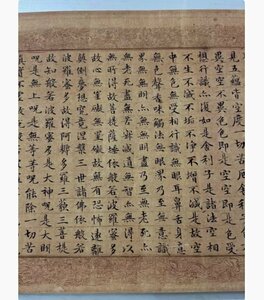 見五蘊皆空度一切苦厄舍利子色不
異空空不異色色即是空空即是色受
想行識亦復如是舍利子是諸法空相
不生不滅不垢不淨不增不減是故空
中無色無受想行識無眼耳鼻舌身意
無色聲香味觸法無眼界乃至無意識
界無無明亦無無明盡乃至無老死亦
無老死盡無苦集滅道無智亦無得以
無所得故菩提薩埵依般若波羅蜜多
故心無罣礙無罣礙故無有恐怖遠離
顛倒夢想究竟涅槃三世諸佛依般若
波羅蜜多故得阿耨多羅三藐三菩提
故知般若波羅蜜多是大神呪是大明
呪是無上呪是無等等呪能除一切苦